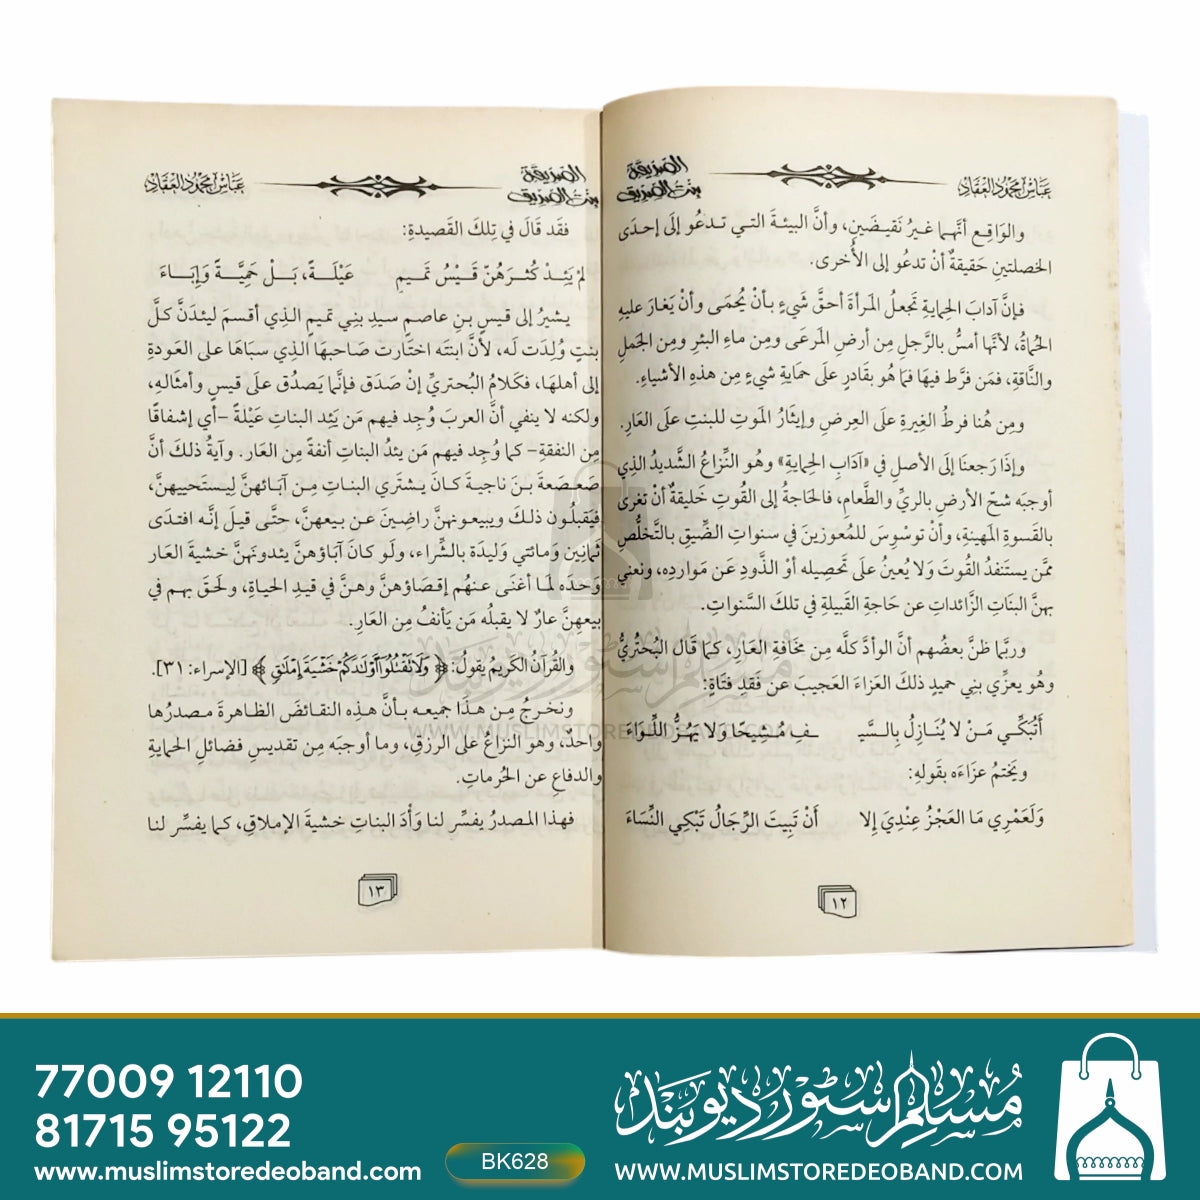 عباس محمود العقاد
الصديقة
بنت الصديق
والوَاقِع أنَّهما غيرُ نَقيضَينِ، وأنَّ البيئةَ التي تدعُو إلى إحدَى
الخصلتينِ حَقيقةٌ أنْ تدعُو إلى الأُخرى.
فإنَّ آدابَ الحِمايةِ تَجعلُ المَرأةَ أحقَّ شَيءٍ بأنْ يُحمَى وأنْ يَغارَ عليهِ
الحُماةُ، لأنَّها أمسُّ بالرَّجلِ مِن أرضِ المَرعَى ومِن ماءِ البئرِ ومِن الجَملِ
والنَّاقةِ، فمَن فرَّط فيهَا فمَا هُو بقَادرٍ علَى حمَايةِ شيءٍ مِن هذهِ الأشياءِ.
ومِن هُنا فرطُ الغِيرةِ علَى العِرضِ وإيثَارُ المَوتِ للبنتِ علَى العَارِ.
وإذَا رَجعنَا إلَى الأصلِ في «آدَابِ الحِمايةِ» وهُو النِّزاعُ الشَّديدُ الذِي
أوجبَه شحّ الأرضِ بالريِّ والطَّعامِ، فالحَاجةُ إلى القُوتِ خَليقةٌ أنْ تغرَى
بالقَسوةِ المَهينةِ، وأنْ توسْوِسَ للمُعوزينَ في سنواتِ الضِّيقِ بالتَّخلُّصِ
ممَّن يستَنفدُ القُوتَ وَلا يُعينُ علَى تَحصِيله أوْ الذَّودِ عَن مَوارِدِه، ونعنِي
بهنَّ البنَاتِ الزَّائداتِ عن حَاجةِ القَبيلةِ في تلكَ السَّنواتِ.
وربَّما ظنَّ بعضُهم أنَّ الوأدَ كلَّه مِن مخَافةِ العَارِ، كمَا قَال البُحتُريُّ
وهُو يعزِّي بنِي حميدٍ ذلكَ العَزاءَ العَجيبَ عَن فَقدِ فتَاةٍ:
أَتُبَكِّي مَنْ لا يُنَازِلُ بِالسَّيـ ـفِ مُشِيحًا وَلا يَهُزُّ اللِّوَاءَ
ويَختمُ عزَاءَه بقَولهِ:
وَلَعَمْرِي مَا العَجْزُ عِنْدِيَ إِلا أَنْ تَبِيتَ الرِّجَالُ تَبْكِي النِّسَاءَ
١٢
الصديقة
بنت الصديق
عباس محمود العقاد
فقَد قَالَ في تِلكَ القَصيدةِ:
لمْ يَئِدْ كُثرَهُنّ قَيْسُ تَميمٍ عَيْلَةً، بَلْ حَمِيَّةً وَإِبَاءَ
يشيرُ إلى قيسِ بنِ عاصمٍ سيدِ بنِي تميمٍ الذِي أقسمَ ليئدَنَّ كلَّ
بنتٍ وُلِدَت لَه، لأنَّ ابنتَه اختَارتْ صَاحبهَا الذِي سبَاهَا على العَودةِ
إلى أهلهَا، فكَلامُ البُحتريِّ إنْ صَدَق فإنَّما يَصدُق علَى قيسٍ وأمثَالِه،
ولكنه لا ينفي أنَّ العربَ وُجِد فيهم مَن يَئِد البناتِ عَيْلةً –أي إشفاقًا
مِن النفقةِ– كما وُجِد فيهم مَن يئدُ البناتِ أنفةً مِن العَار. وآيةُ ذلكَ أنَّ
صَعصَعةَ بنَ ناجيةَ كانَ يشتَرِي البناتِ مِن آبائهنَّ لِيستَحييهنَّ،
فيَقبلُون ذلكَ ويبيعونهنَّ راضِينَ عَن بيعهنَّ، حتَّى قيلَ إنَّه افتدَى
ثمَانِين ومَائتي وَليدة بالشِّراء، ولَو كانَ آبَاؤهنَّ يئدونَهنَّ خشيةَ العَار
وَحدَه لمَا أغنَى عنهُم إقصَاؤهنَّ وهنَّ في قيدِ الحياةِ، ولَحقَ بهم في
بيعهِنَّ عارٌ لا يقبلُه مَن يَأنفُ مِن العَارِ.
والقُرآنُ الكَريمُ يقولُ: ﴿وَلَا تَقْتُلُوٓا۟ أَوْلَٰدَكُمْ خَشْيَةَ إِمْلَٰقٍ﴾ [الإسراء: ٣١].
ونخرجُ مِن هَذَا جَميعِه بأنَّ هذِه النقائضَ الظاهرةَ مصدرُها
واحدٌ، وهو النزاعُ على الرزقِ، وما أوجبَه مِن تقديسِ فضائلِ الحمايةِ
والدفاعِ عن الحُرماتِ.
فهذا المصدرُ يفسِّر لنا وَأدَ البناتِ خشيةَ الإملاقِ، كما يفسِّر لنا
١٣
مسلم سٹور دیوبند
WWW.MUSLIMSTOREDEOBAND.COM
77009 12110
81715 95122
www.muslimstoredeoband.com
BK628
مسلم سٹور دیوبند
WWW.MUSLIMSTOREDEOBAND.COM